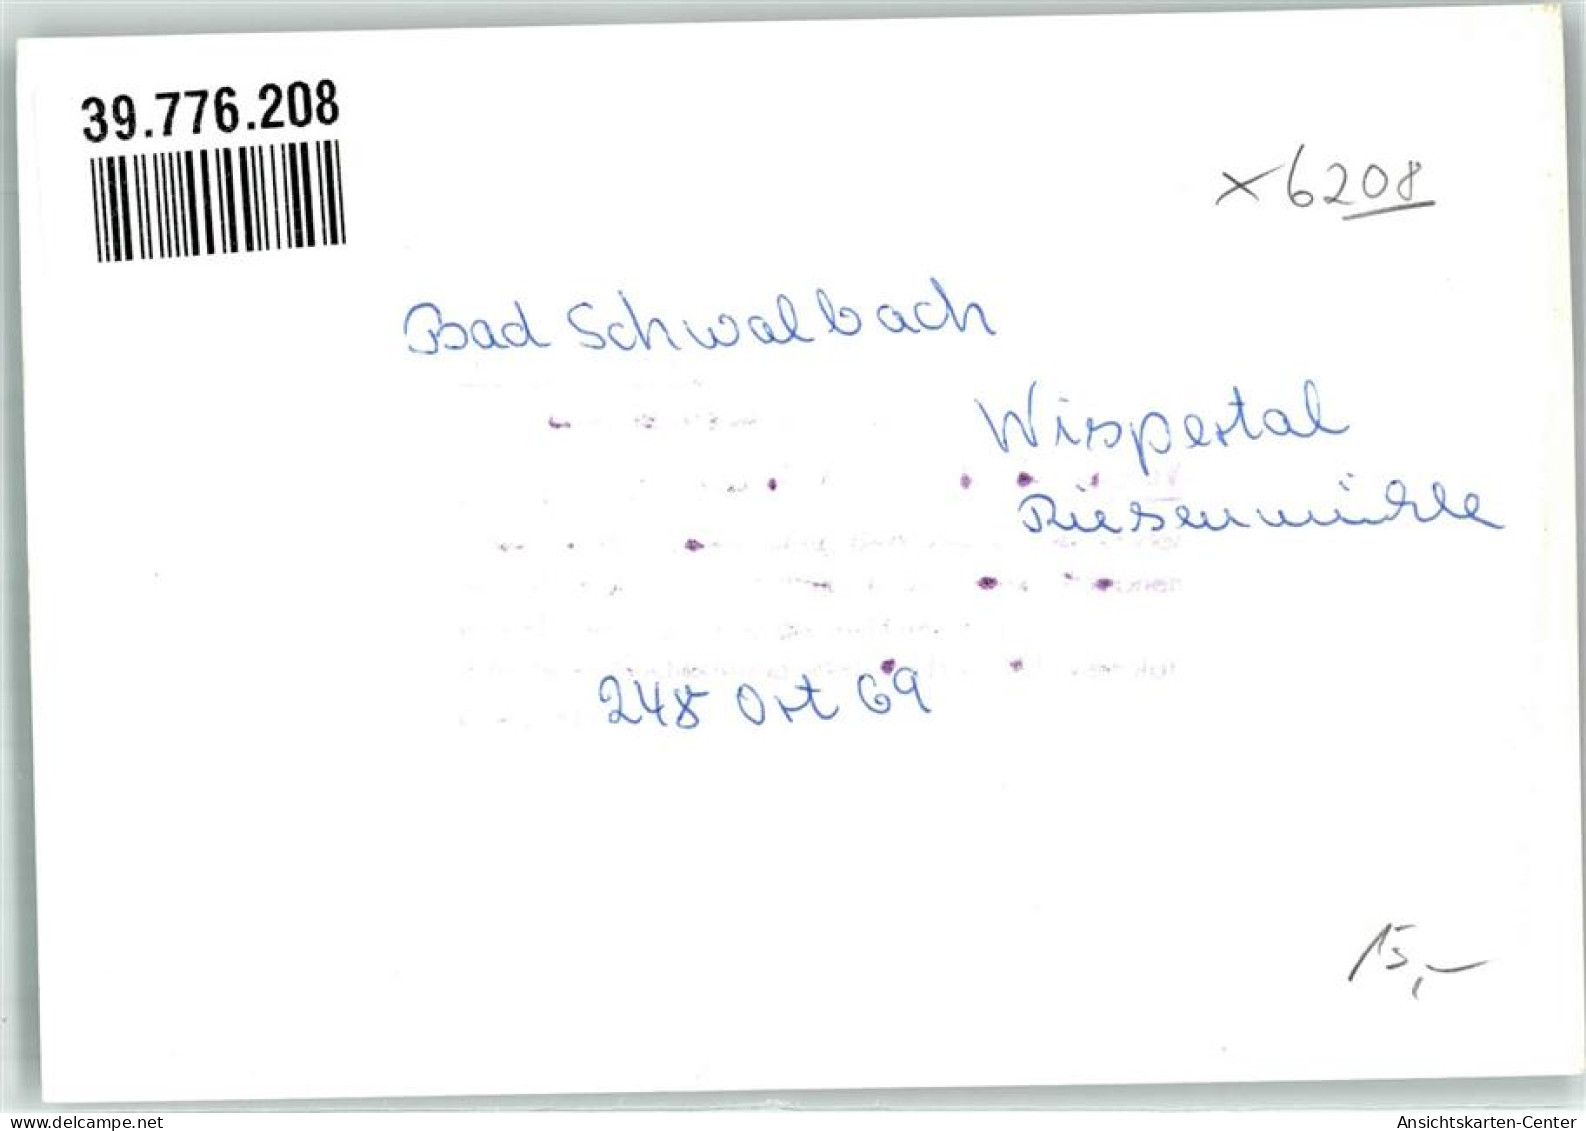 39.776.208
x6208
Bad Schwalbach
Wispertal
Riesenmühle
248 Ort 69
15,-
www.delcampe.net
Ansichtskarten-Center